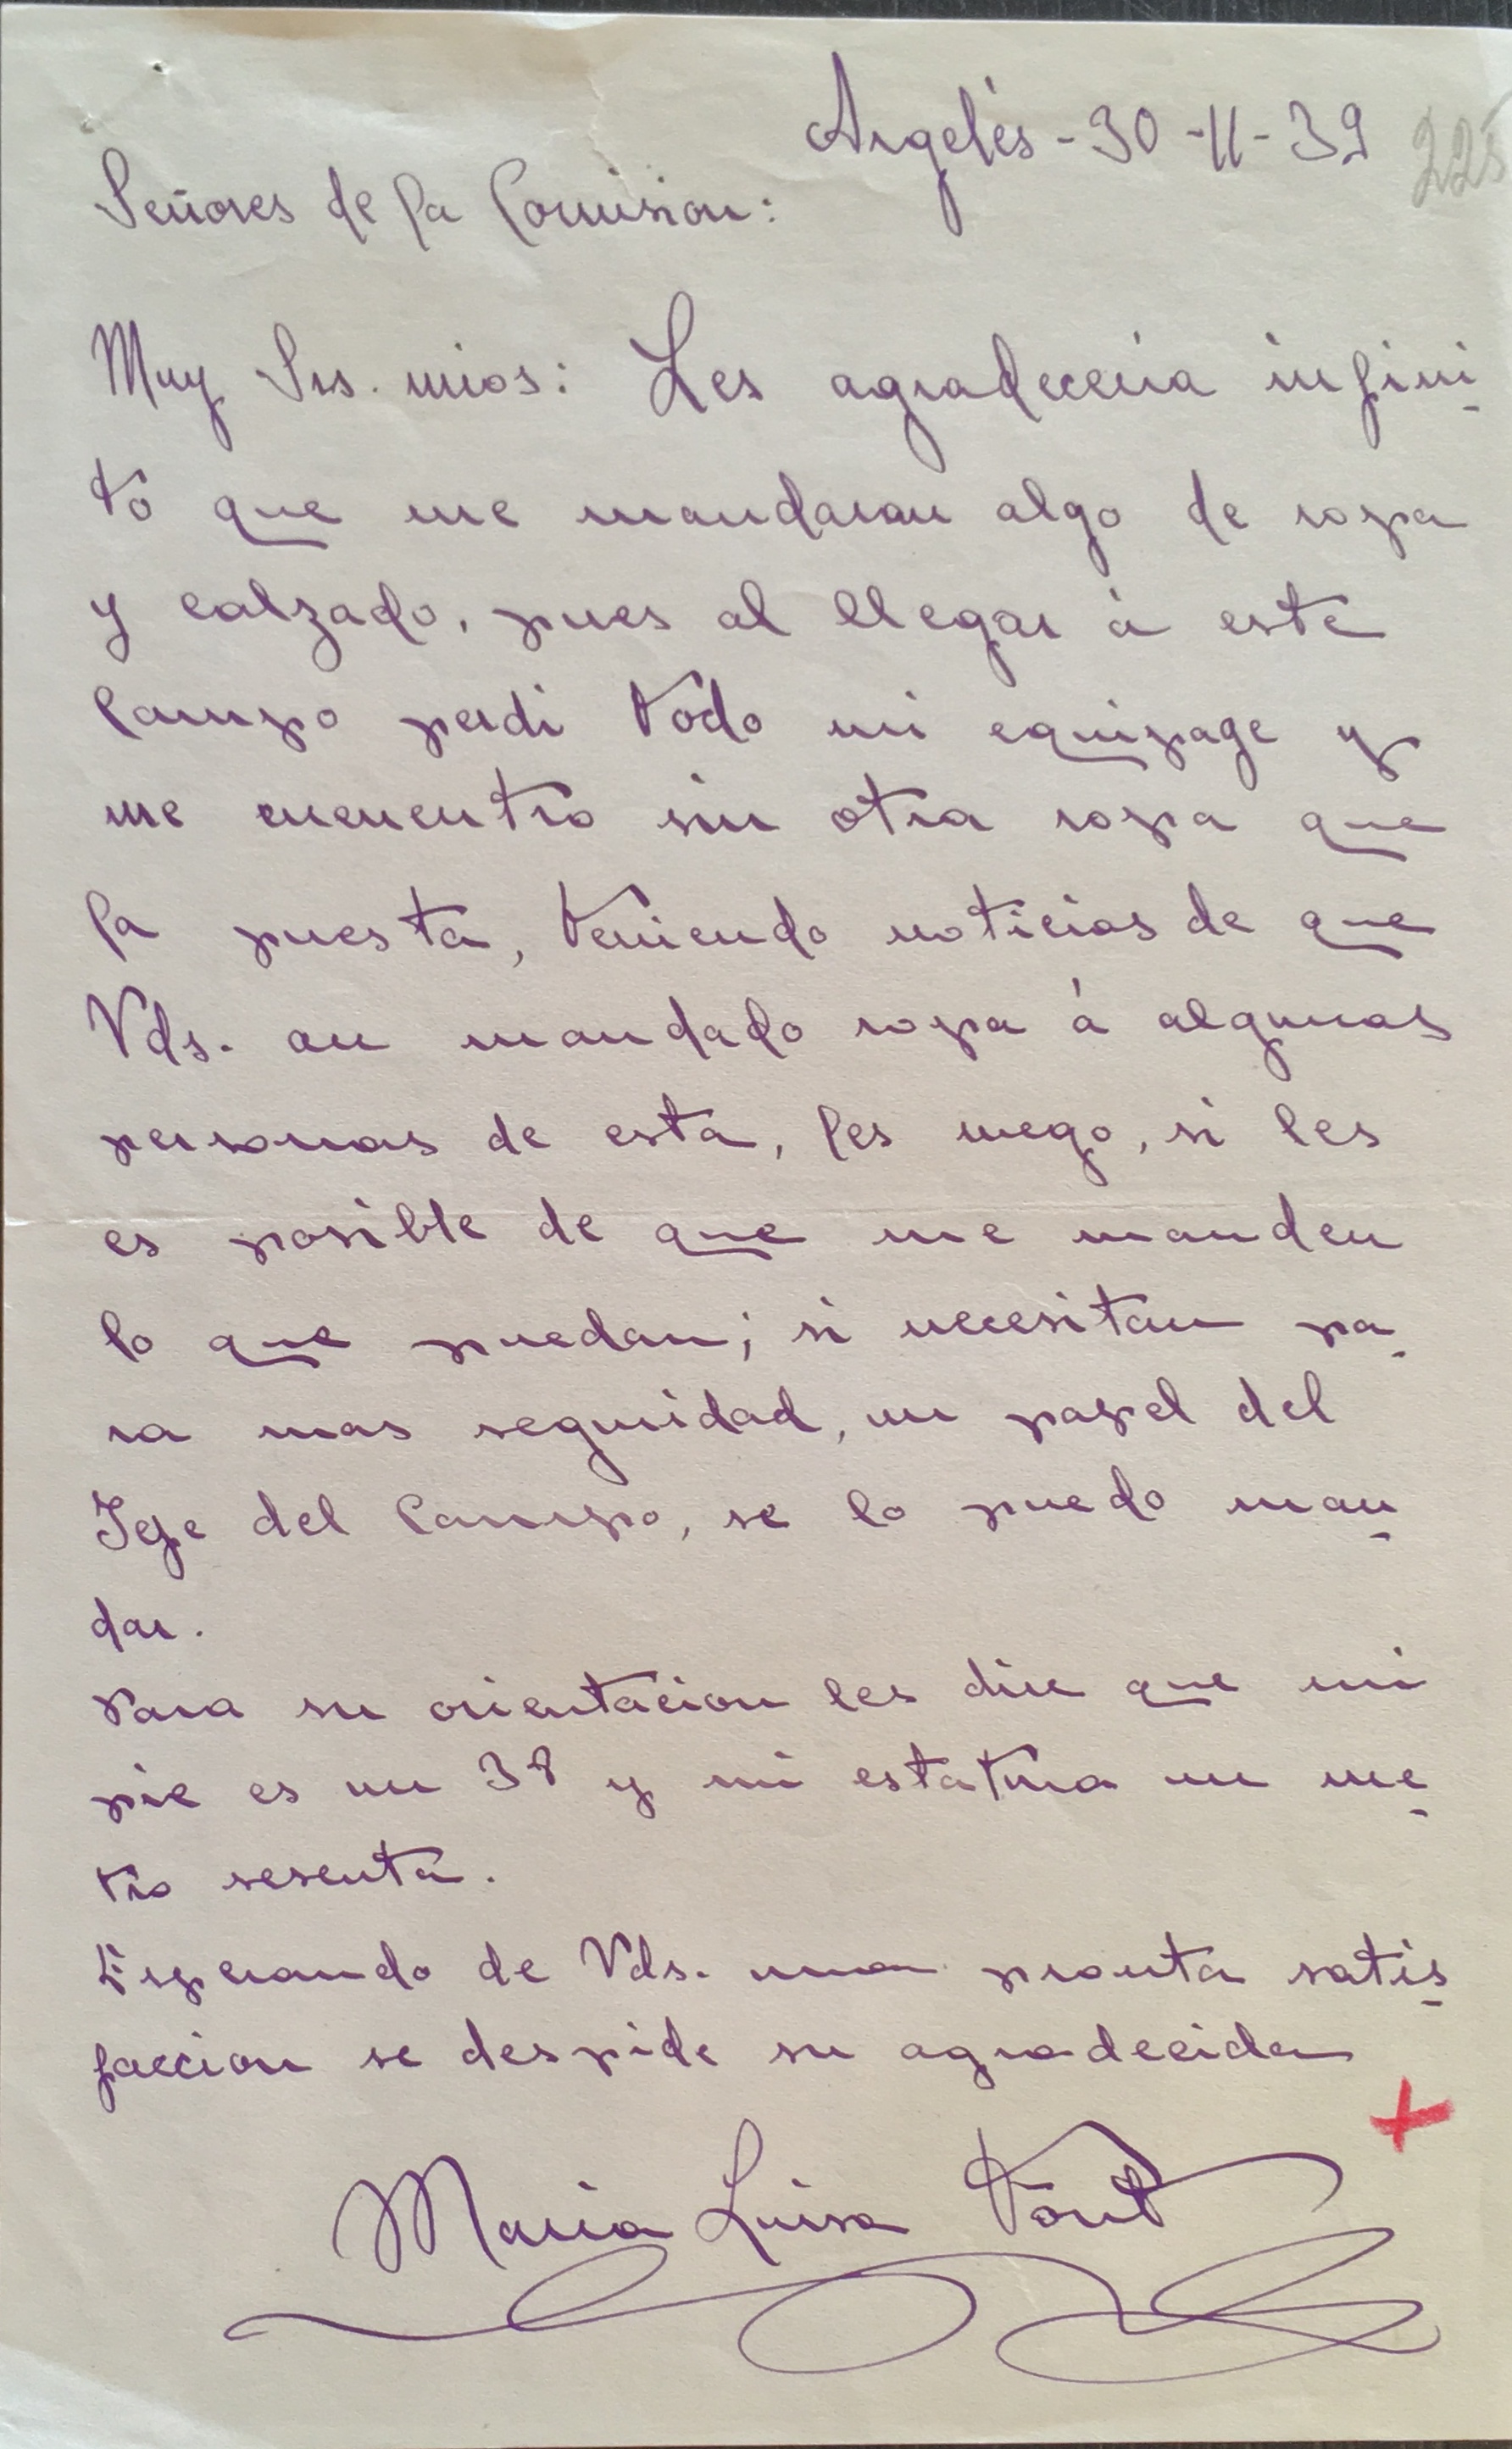 Argelés - 30 - 11 - 39
225
Señores de la Comision:
Muy Srs. mios: Les agradeceria infini-
to que me mandaran algo de ropa
y calzado, pues al llegar á este
Campo perdi todo mi equipage y
me encuentro sin otra ropa que
la puesta, teniendo noticias de que
Vds. an mandado ropa á algunas
personas de esta, les ruego, si les
es posible de que me manden
lo que puedan; si necesitan pa-
ra mas seguridad, un papel del
Jefe del Campo, se lo puedo man-
dar.
Para su orientacion les dire que mi
pie es un 38 y mi estatura un me-
tro sesenta.
Esperando de Vds. una pronta satis-
faccion se despide su agradecida
Maria Luisa